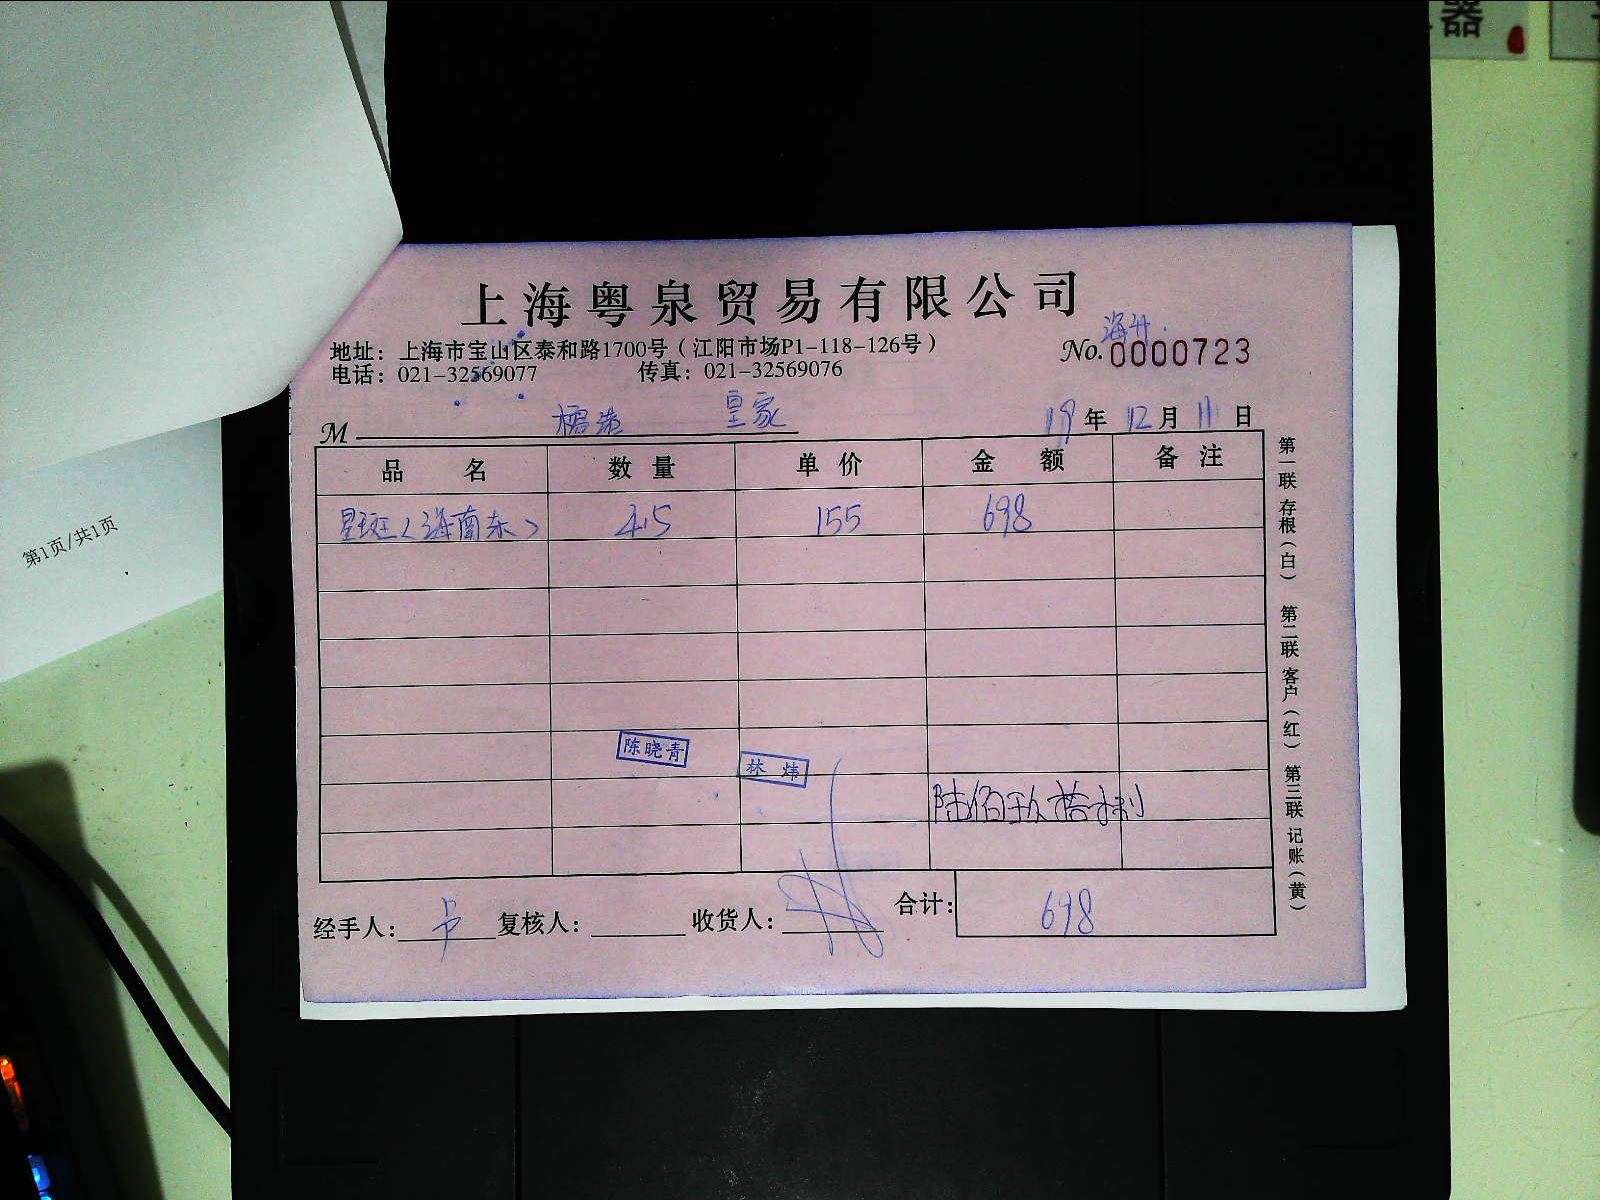 器
第1页/共1页
上海粤泉贸易有限公司
地址：上海市宝山区泰和路1700号（江阳市场P1-118-126号）
电话：021-32569077 传真：021-32569076
海升.
No.0000723
M 皇家 19年 12月 11日
品名 数量 单价 金额 备注
星斑（海南东） 4.5 155 698
陈晓青
林炜
陆佰玖拾捌
经手人：卢 复核人： 收货人： 合计：698
第一联 存根（白） 第二联 客户（红） 第三联 记账（黄）